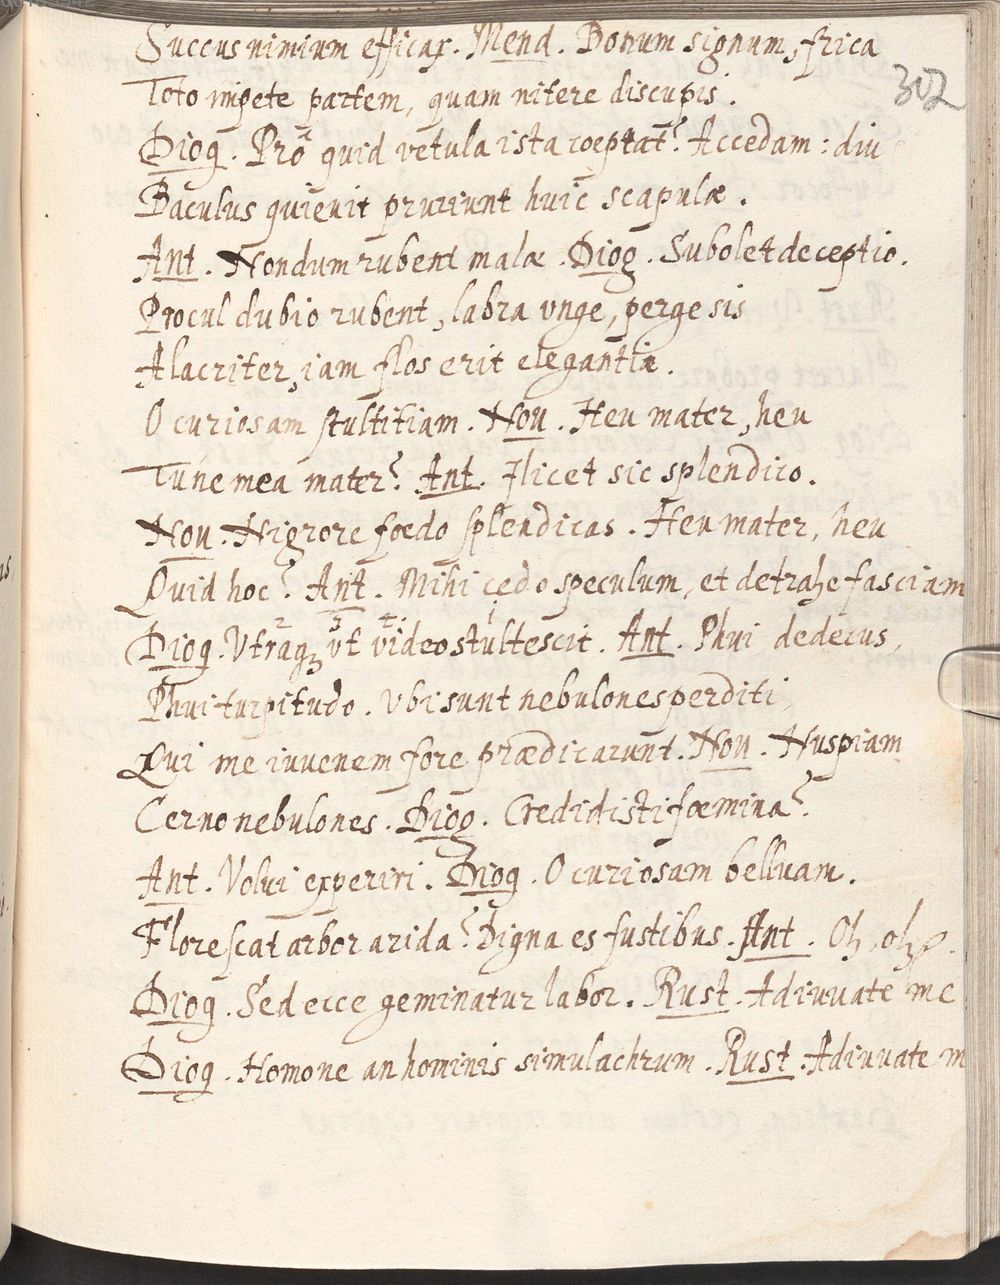 Succus nimium efficax. Mend. Bonum signum, frica
302
Toto impete partem, quam nitere discupis.
Diog. Prô quid vetula ista coeptat? Accedam: diu
Baculus quievit pruriunt huic scapulæ.
Ant. Nondum rubent malæ. Diog. Subolet deceptio.
Procul dubio rubent, labra vnge, perge sis
Alacriter, iam flos erit elegantiæ.
O curiosam stultitiam. Nou. Heu mater, heu
Túne mea mater? Ant. Ilicet sic splendico.
Nou. Nigrore foedo splendicas. Heu mater, heu
Quid hoc? Ant. Mihi cedo speculum, et detrahe fasciam
2 3 4. 1
Diog. Vtraq; vt video stultescit. Ant. Phui dedecus,
Phui turpitudo. Vbi sunt nebulones perditi,
Qui me iuvenem fore prædicarunt. Nou. Nuspiam
Cerno nebulones. Diog. Credidisti foemina?
Ant. Volui experiri. Diog. O curiosam belluam.
Florescat arbor arida? Digna es fustibus. Ant. Oh, oh
Diog. Sed ecce geminatur labor. Rust. Adiuvate me
Diog. Homone an hominis simulachrum. Rust. Adiuvate m